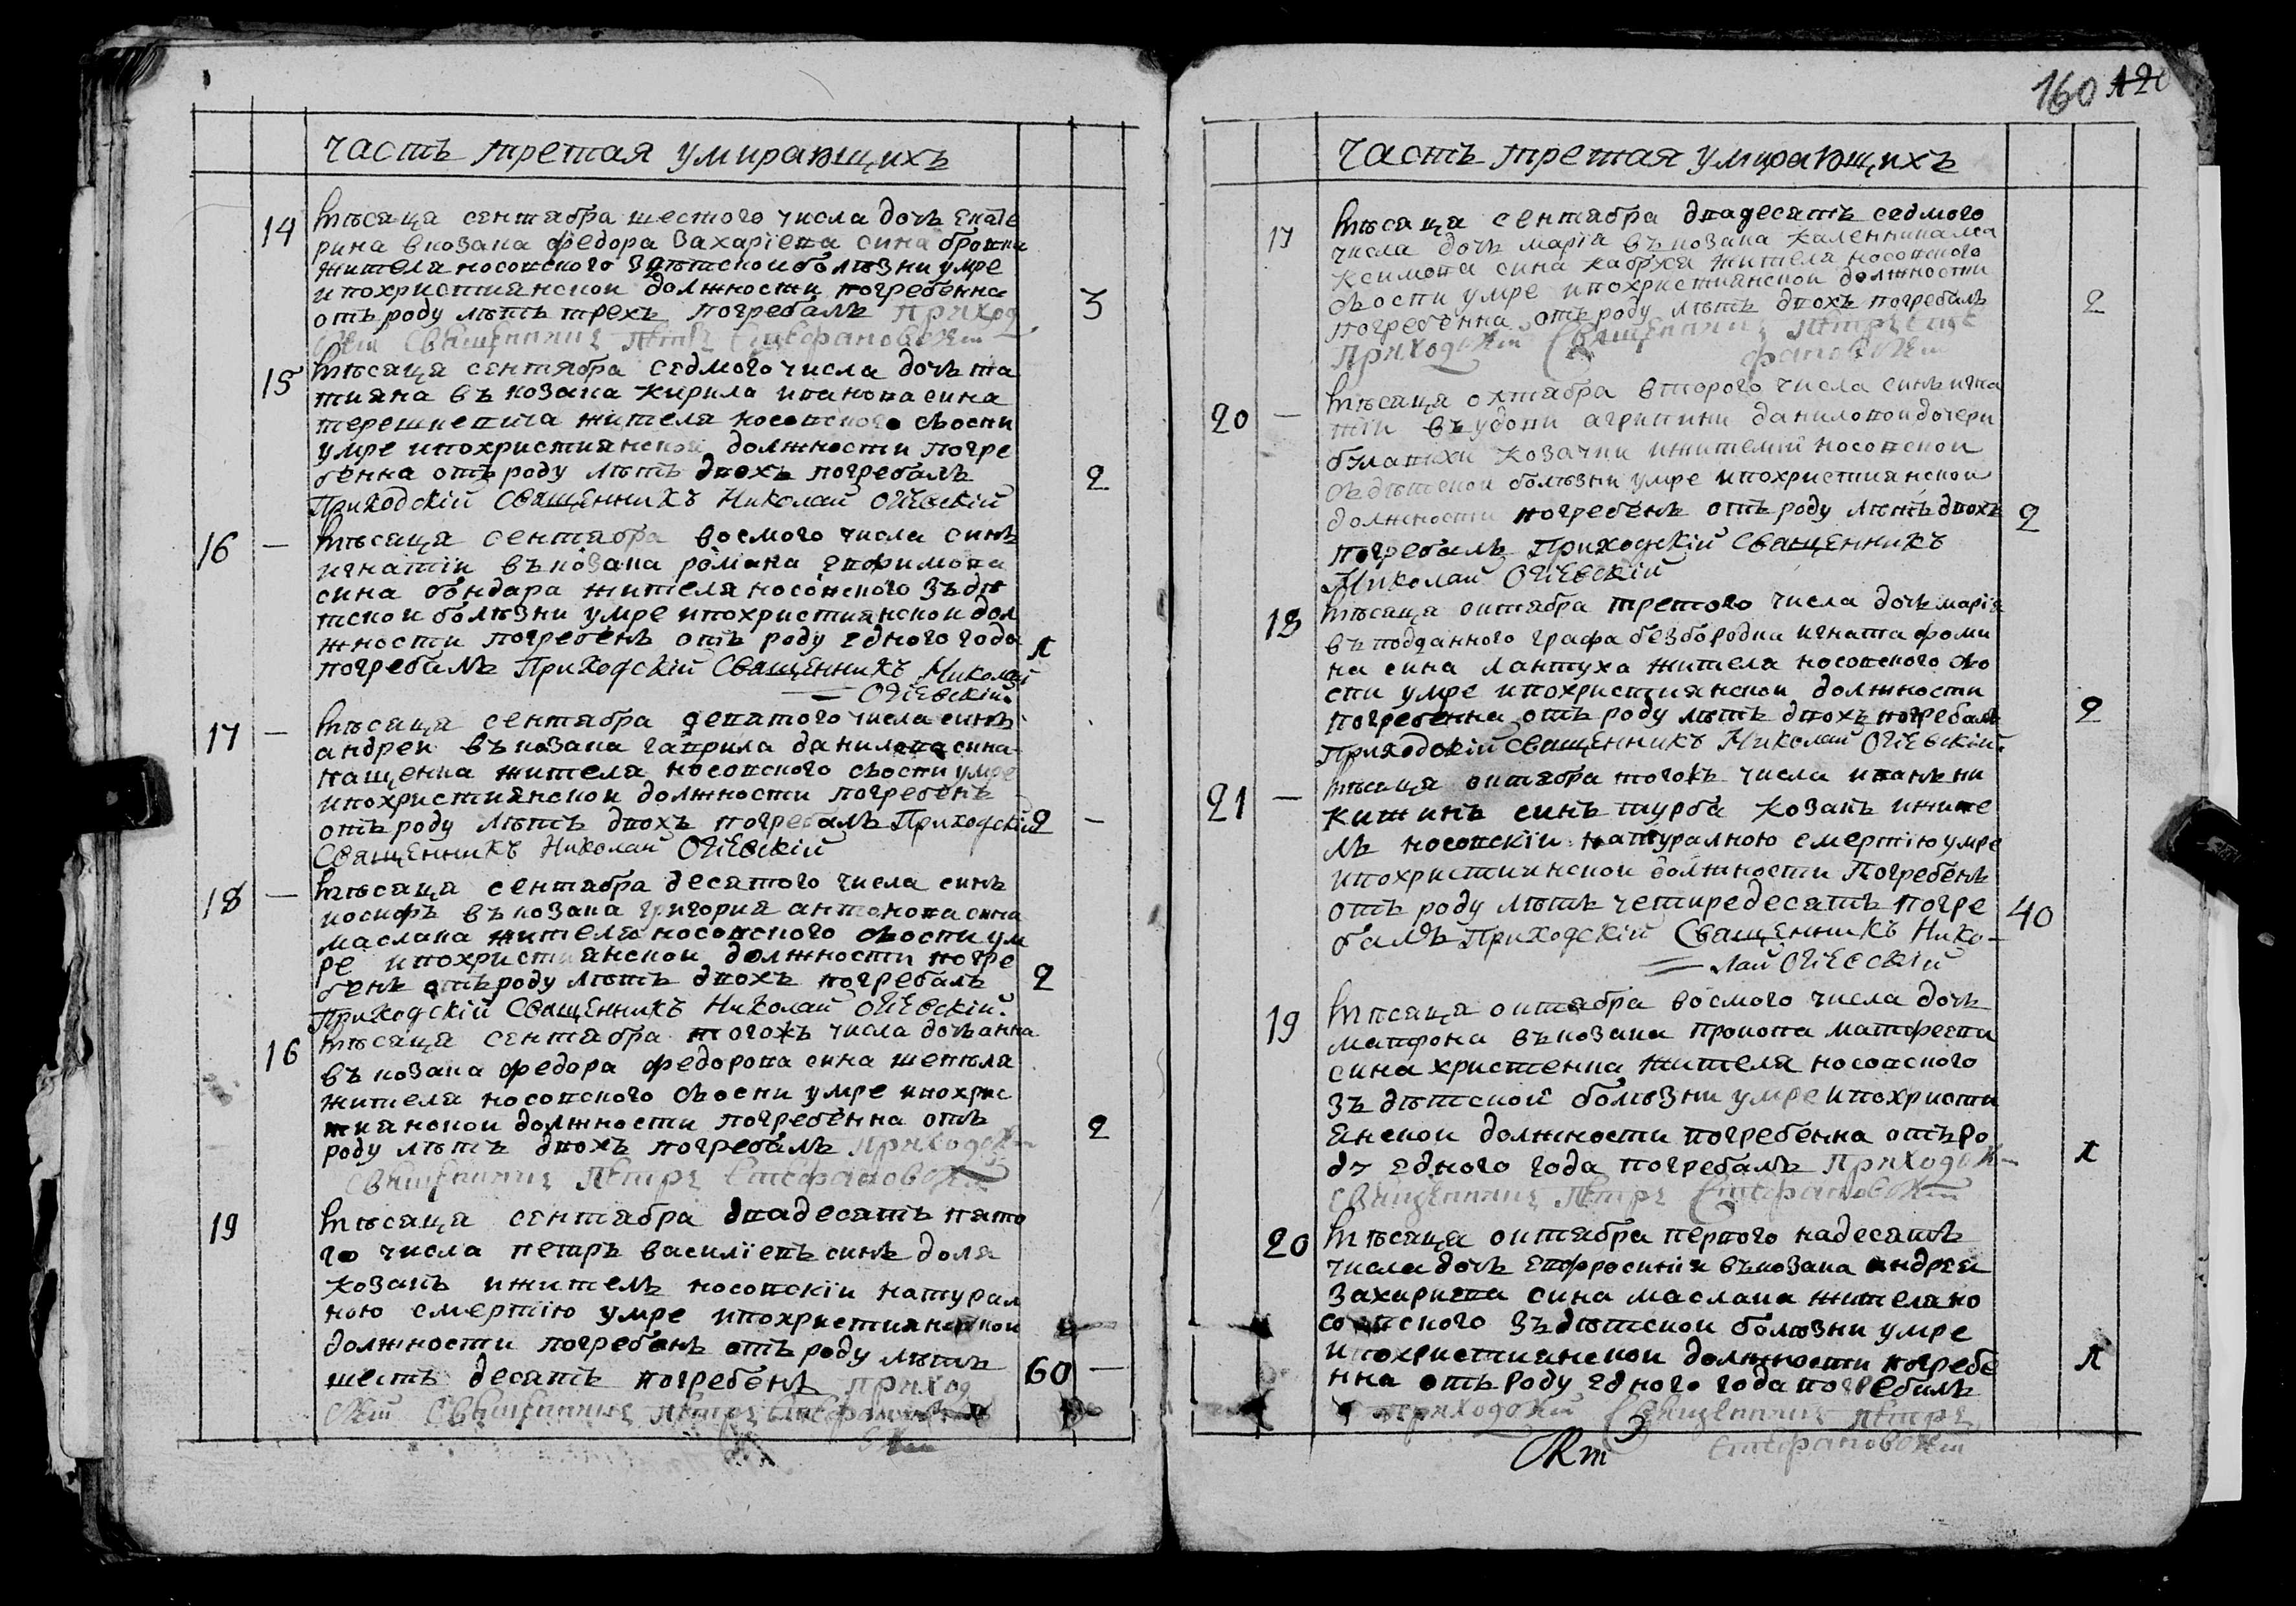 160 120
часть третая умирающихъ
14 мѣсаца сентабра шестого числа дочь екате
рина в козака федора захарїева сина
жителя носовского зъдѣтскои болѣзни умре
ипохристиянскои должности погребенна
отъ роду лѣтъ трехъ погребалъ Приход 3
скїй Священникъ Петръ Стефановскїй
15 мѣсаца сентября седмого числа дочь та
тияна въ козака кирила иванова сина
терешкевича жителя носовского съоспи
умре ипохристиянской должности погре
бенна отъ роду лѣтъ двохъ погребалъ 2
Приходскїй Священникъ Николай Огїевскїй
16 — мѣсаца сентабра восмого числа синъ
игнатїи въ козака романа евфимова
сина бондара жителя носовского зъдѣ
тскои болѣзни умре ипохристиянскои дол
жности погребенъ отъ роду едного года 1
погребалъ Приходскїй Священникъ Николай
Огїевскїй.
17 — мѣсаца сентабра деватого числа синъ
андреи въ козака гаврила данилова сина
нащенка жителя носовского съоспи умре
ипохристиянскои должности погребенъ
отъ роду лѣтъ двохъ погребалъ Приходскїй 2 —
Священникъ Николай Огїевскїй
18 — мѣсаца сентабра десатого числа синъ
иосифъ въ козака григория антонова сина
маслака жителя носовского съоспи ум
ре ипохристиянскои должности погре
бенъ отъ роду лѣтъ двохъ погребалъ 2
Приходскїй Священникъ Николай Огїевскїй.
16 мѣсаца сентабра тогожъ числа дочь анна
въ козака федора федорова сина
жителя носовского съоспи умре ипохрис
тиянскои должности погребенна отъ 2
роду лѣтъ двохъ погребалъ Приходскїй
Священникъ Петръ Стефановскїй
19 мѣсаца сентабра двадесатъ пято
го числа петръ василїевъ синъ доля
козакъ ижитель носовскїи натурал
ною смертїю умре ипохристиянскои
должности погребенъ отъ роду лѣтъ
шестъ десатъ погребенъ приход 60 —
скїй Священникъ Петръ Стефанов
скїй
частъ третая умирающихъ
17 мѣсаца сентабра двадесатъ седмого
числа дочь марїя въ козака каленника ма
ксимова сина кабруса жителя носовского
съоспи умре ипохристиянскои должности
погребенна отъ роду лѣтъ двохъ погребалъ 2
Приходскїй Священникъ Петръ Сте
фановскїй
20 — мѣсаца октабра второго числа синъ игна
тїи въ удови агрипини даниловои дочери
булавихи козачки ижителки носовскои
зъ дѣтскои болѣзни умре ипохристиянскои
должности погребенъ отъ роду лѣтъ двохъ 2
погребалъ Приходскїй Священникъ
Николай Огїевскїй
18 мѣсаца октабра третого числа дочь марїя
въ подданного графа безбородки игната фоми
на сина лантуха жителя носовского съо
спи умре ипохристиянскои должности
погребенна отъ роду лѣтъ двохъ погребалъ 2
Приходскїй священникъ Николай Огїевскїй.
21 — мѣсаца октабра тогожъ числа иванъ ни
китинъ синъ турба козакъ ижите
ль носовскїи натуралною смертїю умре
ипохристиянскои должности Погребенъ
отъ роду лѣтъ четиредесатъ погре 40
балъ Приходскїй Священникъ Нико-
лай Огїевскїй
19 мѣсаца октабра восмого числа дочь
матрона въ козака прокопа матфеева
сина христенка жителя носовского
зъ дѣтской болѣзни умре ипохристи
янскои должности погребенна отъ ро
ду едного года погребалъ Приходскїй 1
Священникъ Петръ Стефановскїй
20 мѣсаца октабра первого надесатъ
числа дочь евфросинїя въ козака андрея
захариева сина маслака жителя но
совского зъдѣтскои болѣзни умре
ипохристиянскои должности погребе 1
нна отъ роду едного года погребалъ
приходскїй Священникъ Петръ
Стефановскїй